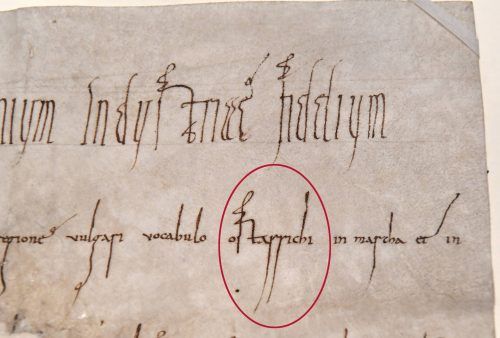 nium Industria fidelium
regione vulgari vocabulo ostarrichi in marcha et in